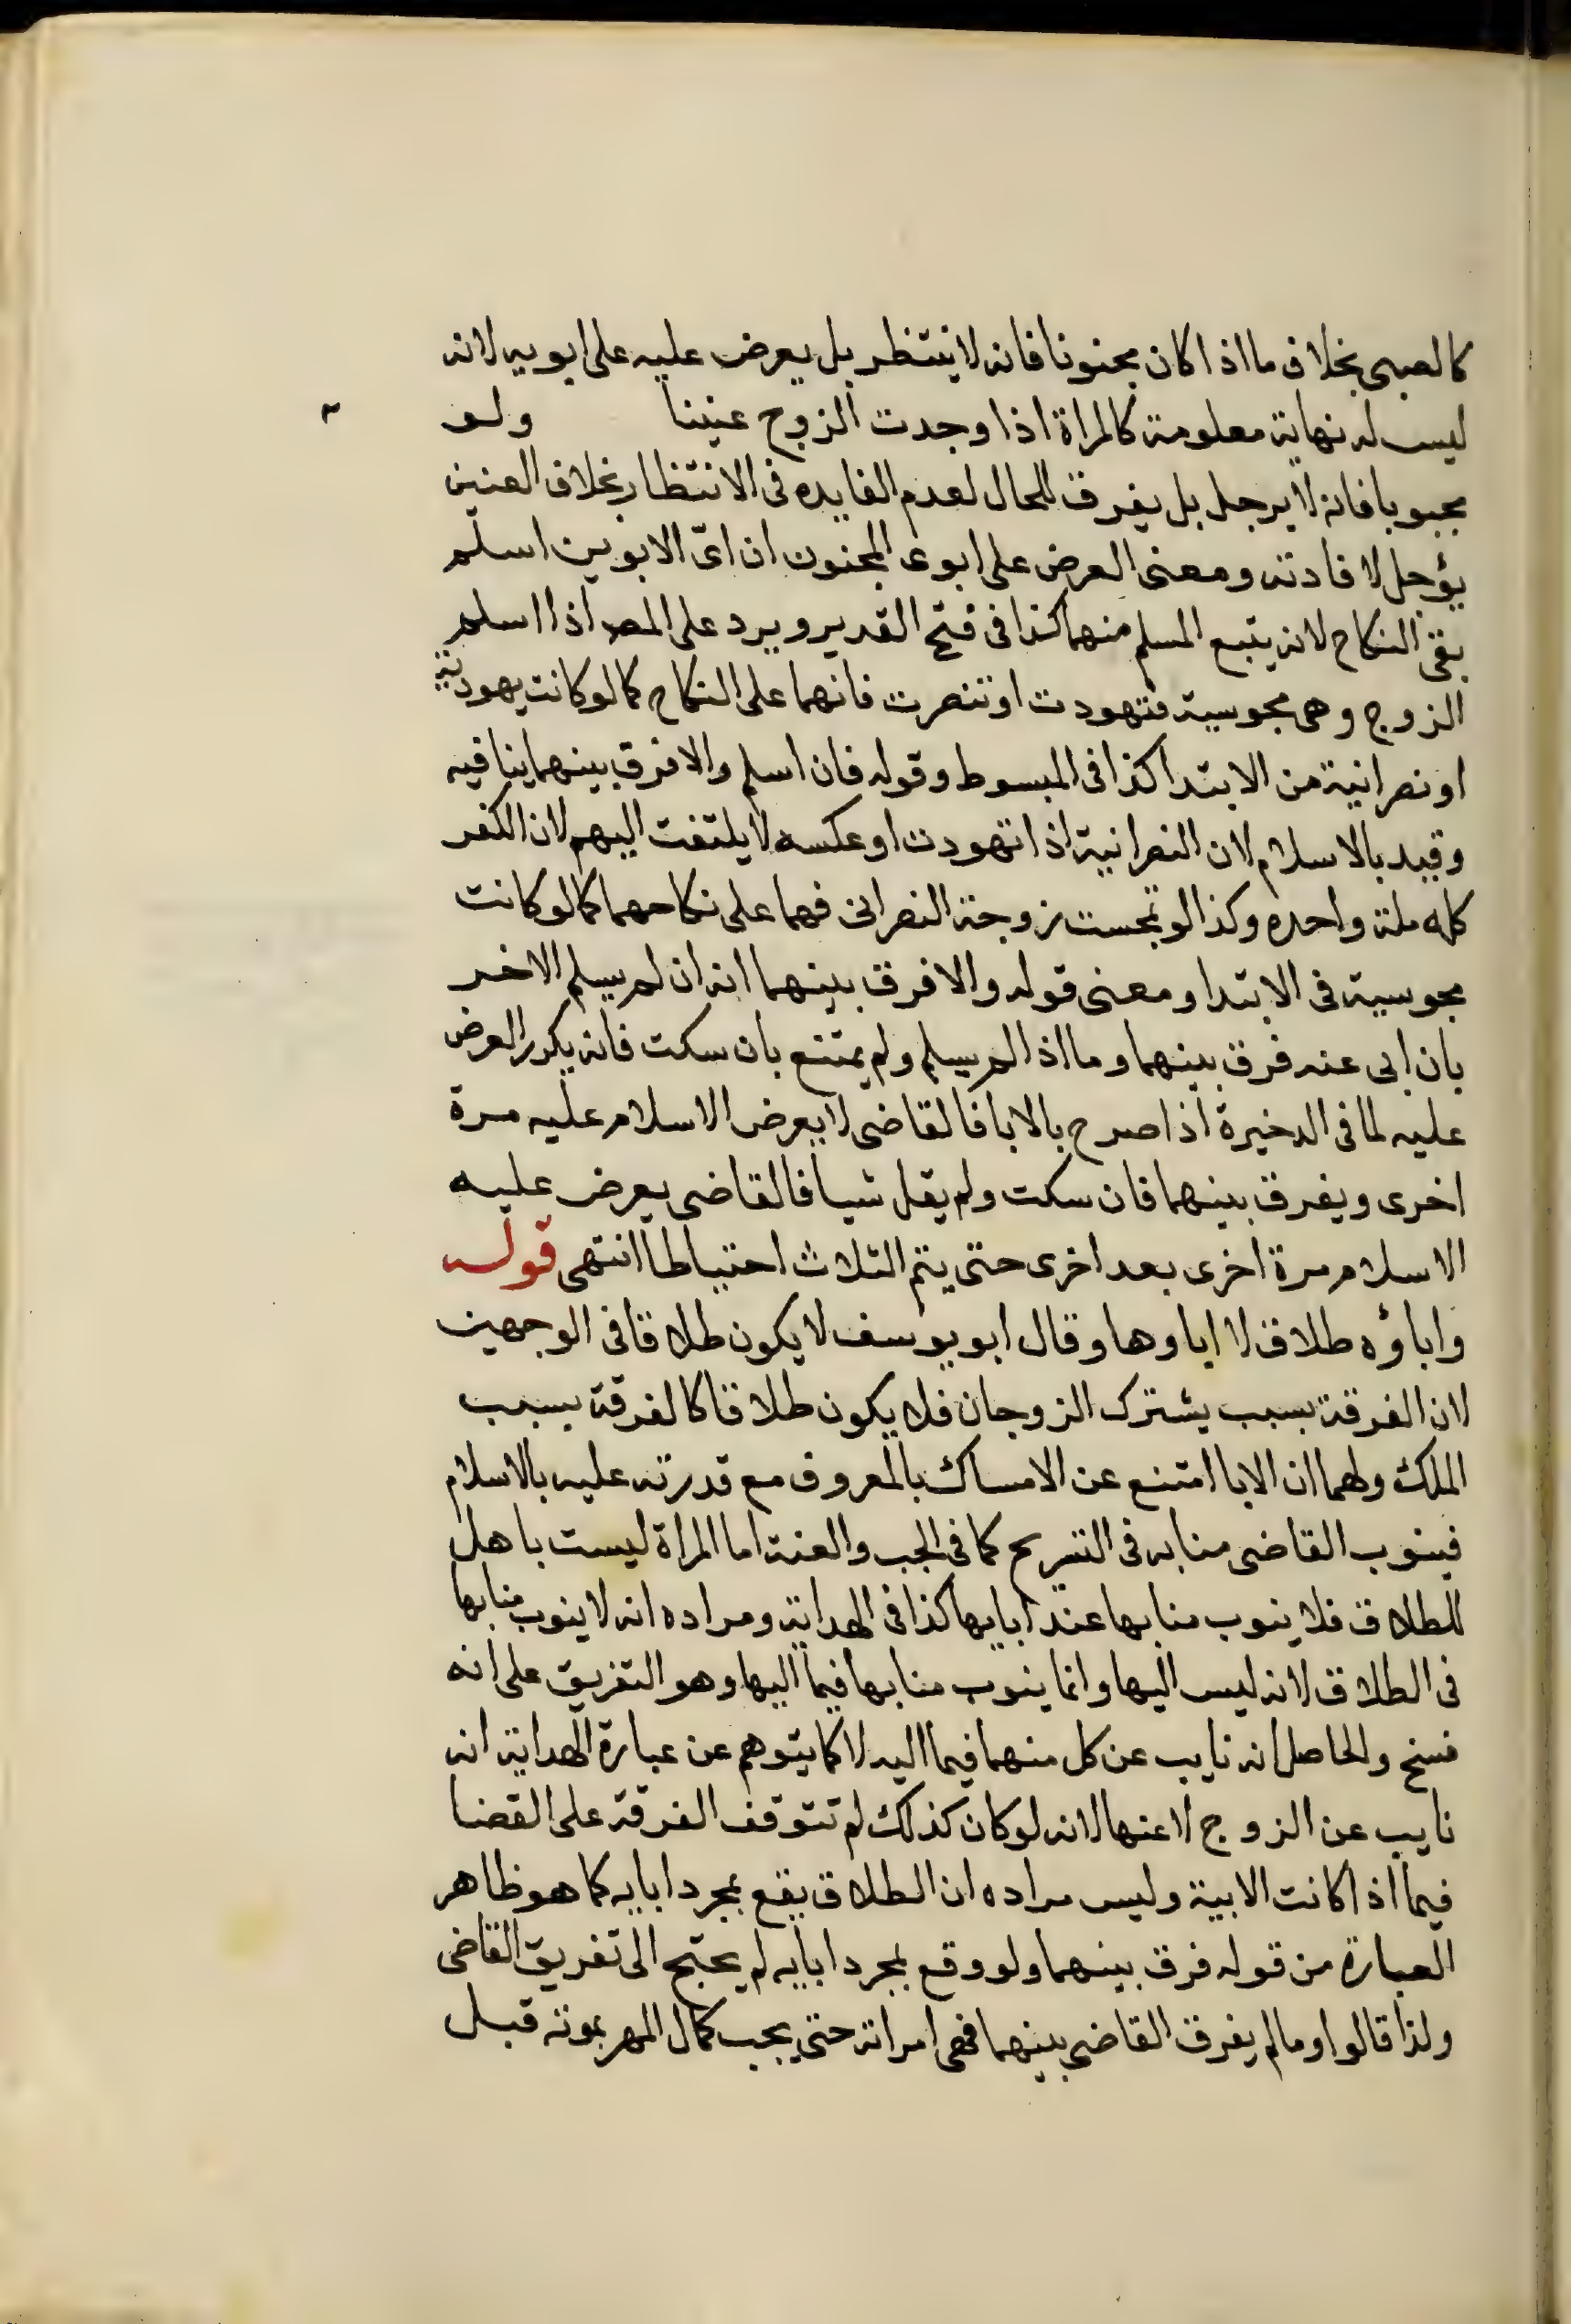 كالصبى بخلاف ما اذا كان مجنونا فانه لا ينتظر بل يعرض عليه على ابويه لانه
ليس له نهاية معلومة كالمراة اذا وجدت الزوج عنينا ولو
مجبوبا فانه لا يرجل بل يفرق للحال لعدم الفايده فى الانتظار بخلاف العنين
يؤجل لافادته ومعنى العرض على ابوى المجنون ان اىّ الابوين اسلم
بقى النكاح لانه يتبع المسلم منهما كذا فى فتح القدير ويرد على المصـ اذا اسلم
الزوج وهى مجوسية فتهودت او تنصرت فانهما على النكاح كما لو كانت يهودية
او نصرانية من الابتدا كذا فى المبسوط وقوله فان اسلم والا فرق بينهما ينافيه
وقيد بالاسلام لان النصرانية اذا تهودت او عكسه لا يلتفت اليهم لان الكفر
كله ملة واحده وكذا لو تمجست زوجة النصرانى فهما على نكاحهما كما لو كانت
مجوسية فى الابتدا ومعنى قوله والا فرق بينهما انه ان لم يسلم الاخر
بان ابى عنه فرق بينهما وما اذا لم يسلم ولم يمتنع بان سكت فانه يكرر العرض
عليه لما فى الدخيرة اذا صرح بالابا فالقاضى لا يعرض الاسلام عليه مرة
اخرى ويفرق بينهما فان سكت ولم يقل شيا فالقاضى يعرض عليه
الاسلام مرة اخرى بعد اخرى حتى يتم الثلاث احتياطا انتهى قوله
واباؤه طلاق لا اباوها وقال ابو يوسف لا يكون طلاقا فى الوجهين
لان الفرقة بسبب يشترك الزوجان فلا يكون طلاقا كالفرقة بسبب
الملك ولهما ان الابا امتنع عن الامساك بالمعروف مع قدرته عليه بالاسلام
فينوب القاضى منابه فى التسريح كما فى الجب والعنة اما المراة ليست باهل
للطلاق فلا ينوب منابها عند ابايها كذا فى الهداية ومراده انه لا ينوب منابها
فى الطلاق لانه ليس اليها وانما ينوب منابها فيما اليها وهو التفريق على انه
فسخ والحاصل انه نايب عن كل منهما فيما اليه لا كما يتوهم عن عبارة الهداية انه
نايب عن الزوج لا عنها لانه لو كان كذلك لم تتوقف الفرقة على القضا
فيما اذا كانت الابية وليس مراده ان الطلاق يقع بمجرد ابايه كما هو ظاهر
العبارة من قوله فرق بينهما ولو وقع بمجرد ابايه لم يحتج الى تفريق القاضى
ولذا قالوا وما لم يفرق القاضى بينهما فهى امراته حتى يجب كمال المهر بموته قبل